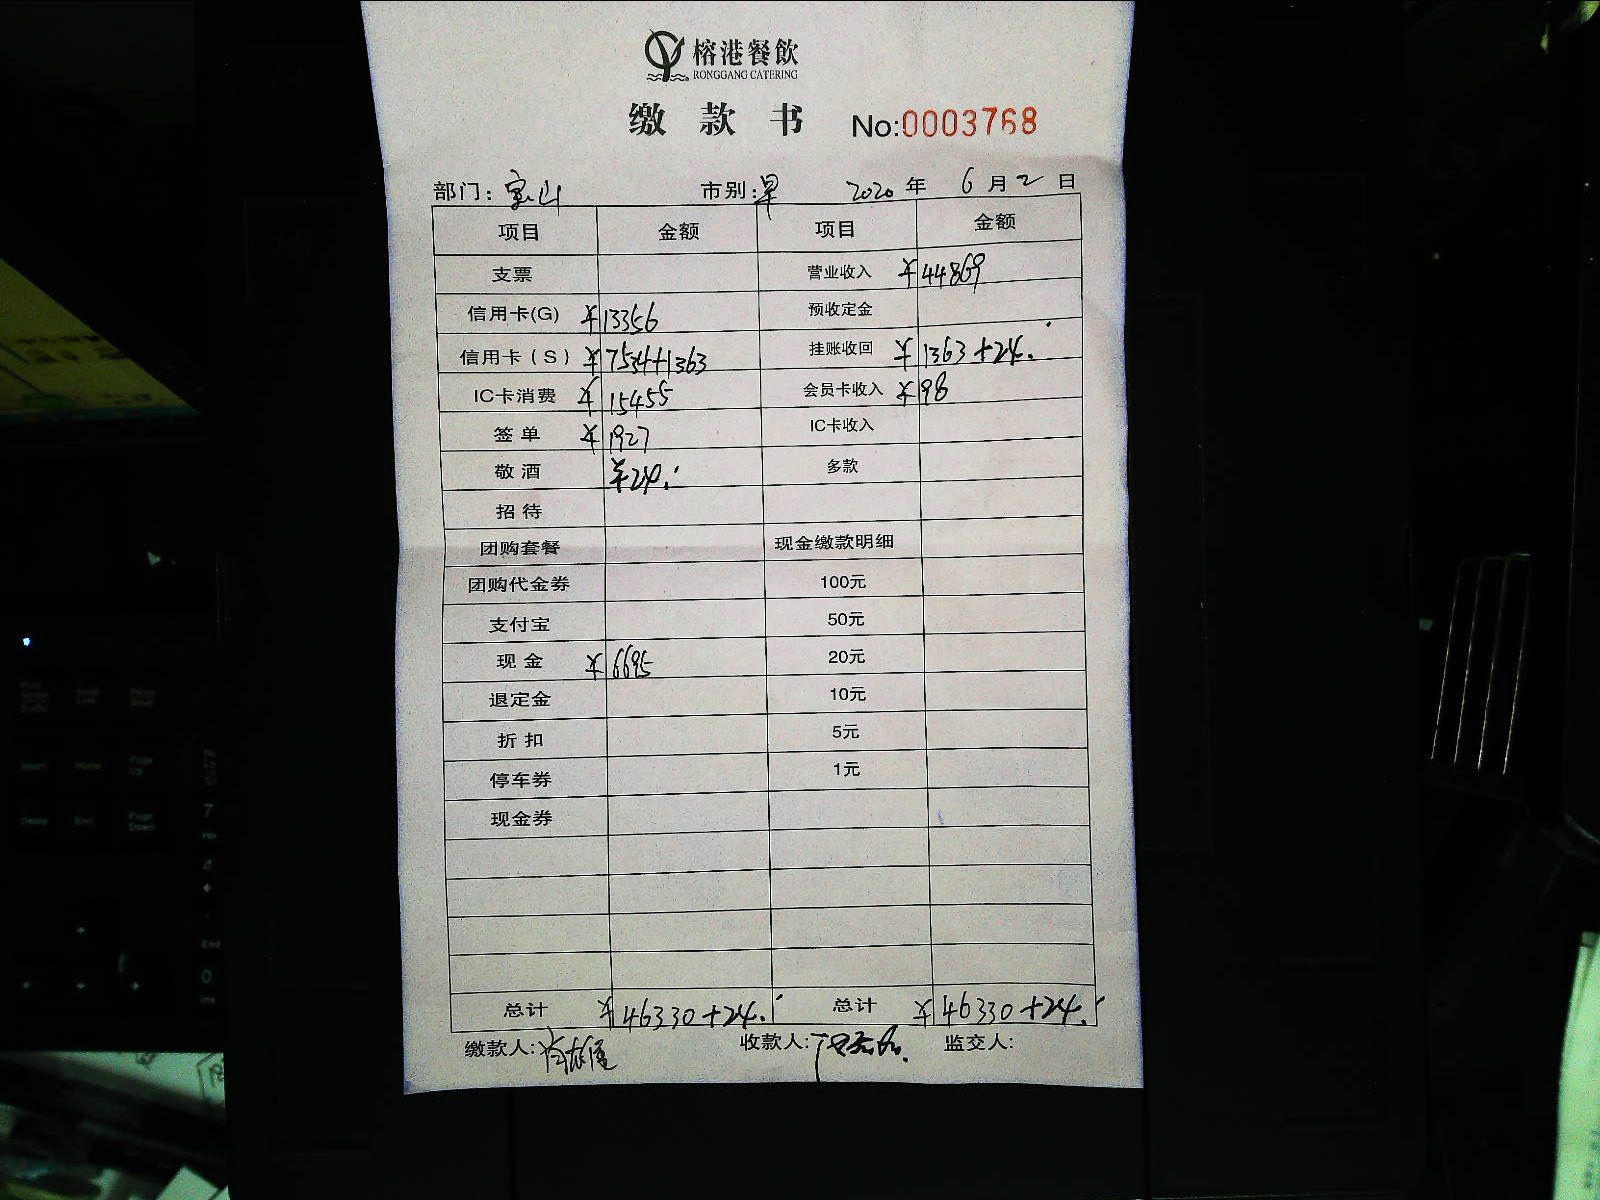 榕港餐飲
RONGGANG CATERING
缴款书 No:0003768
部门: 宝山 市别: 早 2020年 6月2日
项目 金额 项目 金额
支票 营业收入 ¥44869
信用卡(G) ¥13356 预收定金
信用卡(S) ¥7534+1363 挂账收回 ¥1363+24.
IC卡消费 ¥15455 会员卡收入 ¥98
签单 ¥1927 IC卡收入
敬酒 ¥24. 多款
招待
团购套餐 现金缴款明细
团购代金券 100元
支付宝 50元
现金 ¥6695 20元
退定金 10元
折扣 5元
停车券 1元
现金券
总计 ¥46330+24. 总计 ¥46330+24.
缴款人: 收款人: 监交人: